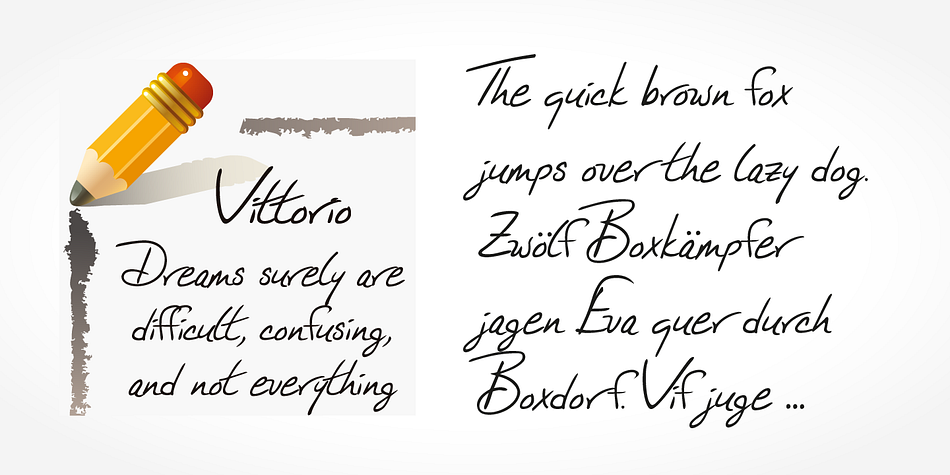 Vittorio
Dreams surely are
difficult, confusing,
and not everything
The quick brown fox
jumps over the lazy dog.
Zwölf Boxkämpfer
jagen Eva quer durch
Boxdorf. Vif juge ...